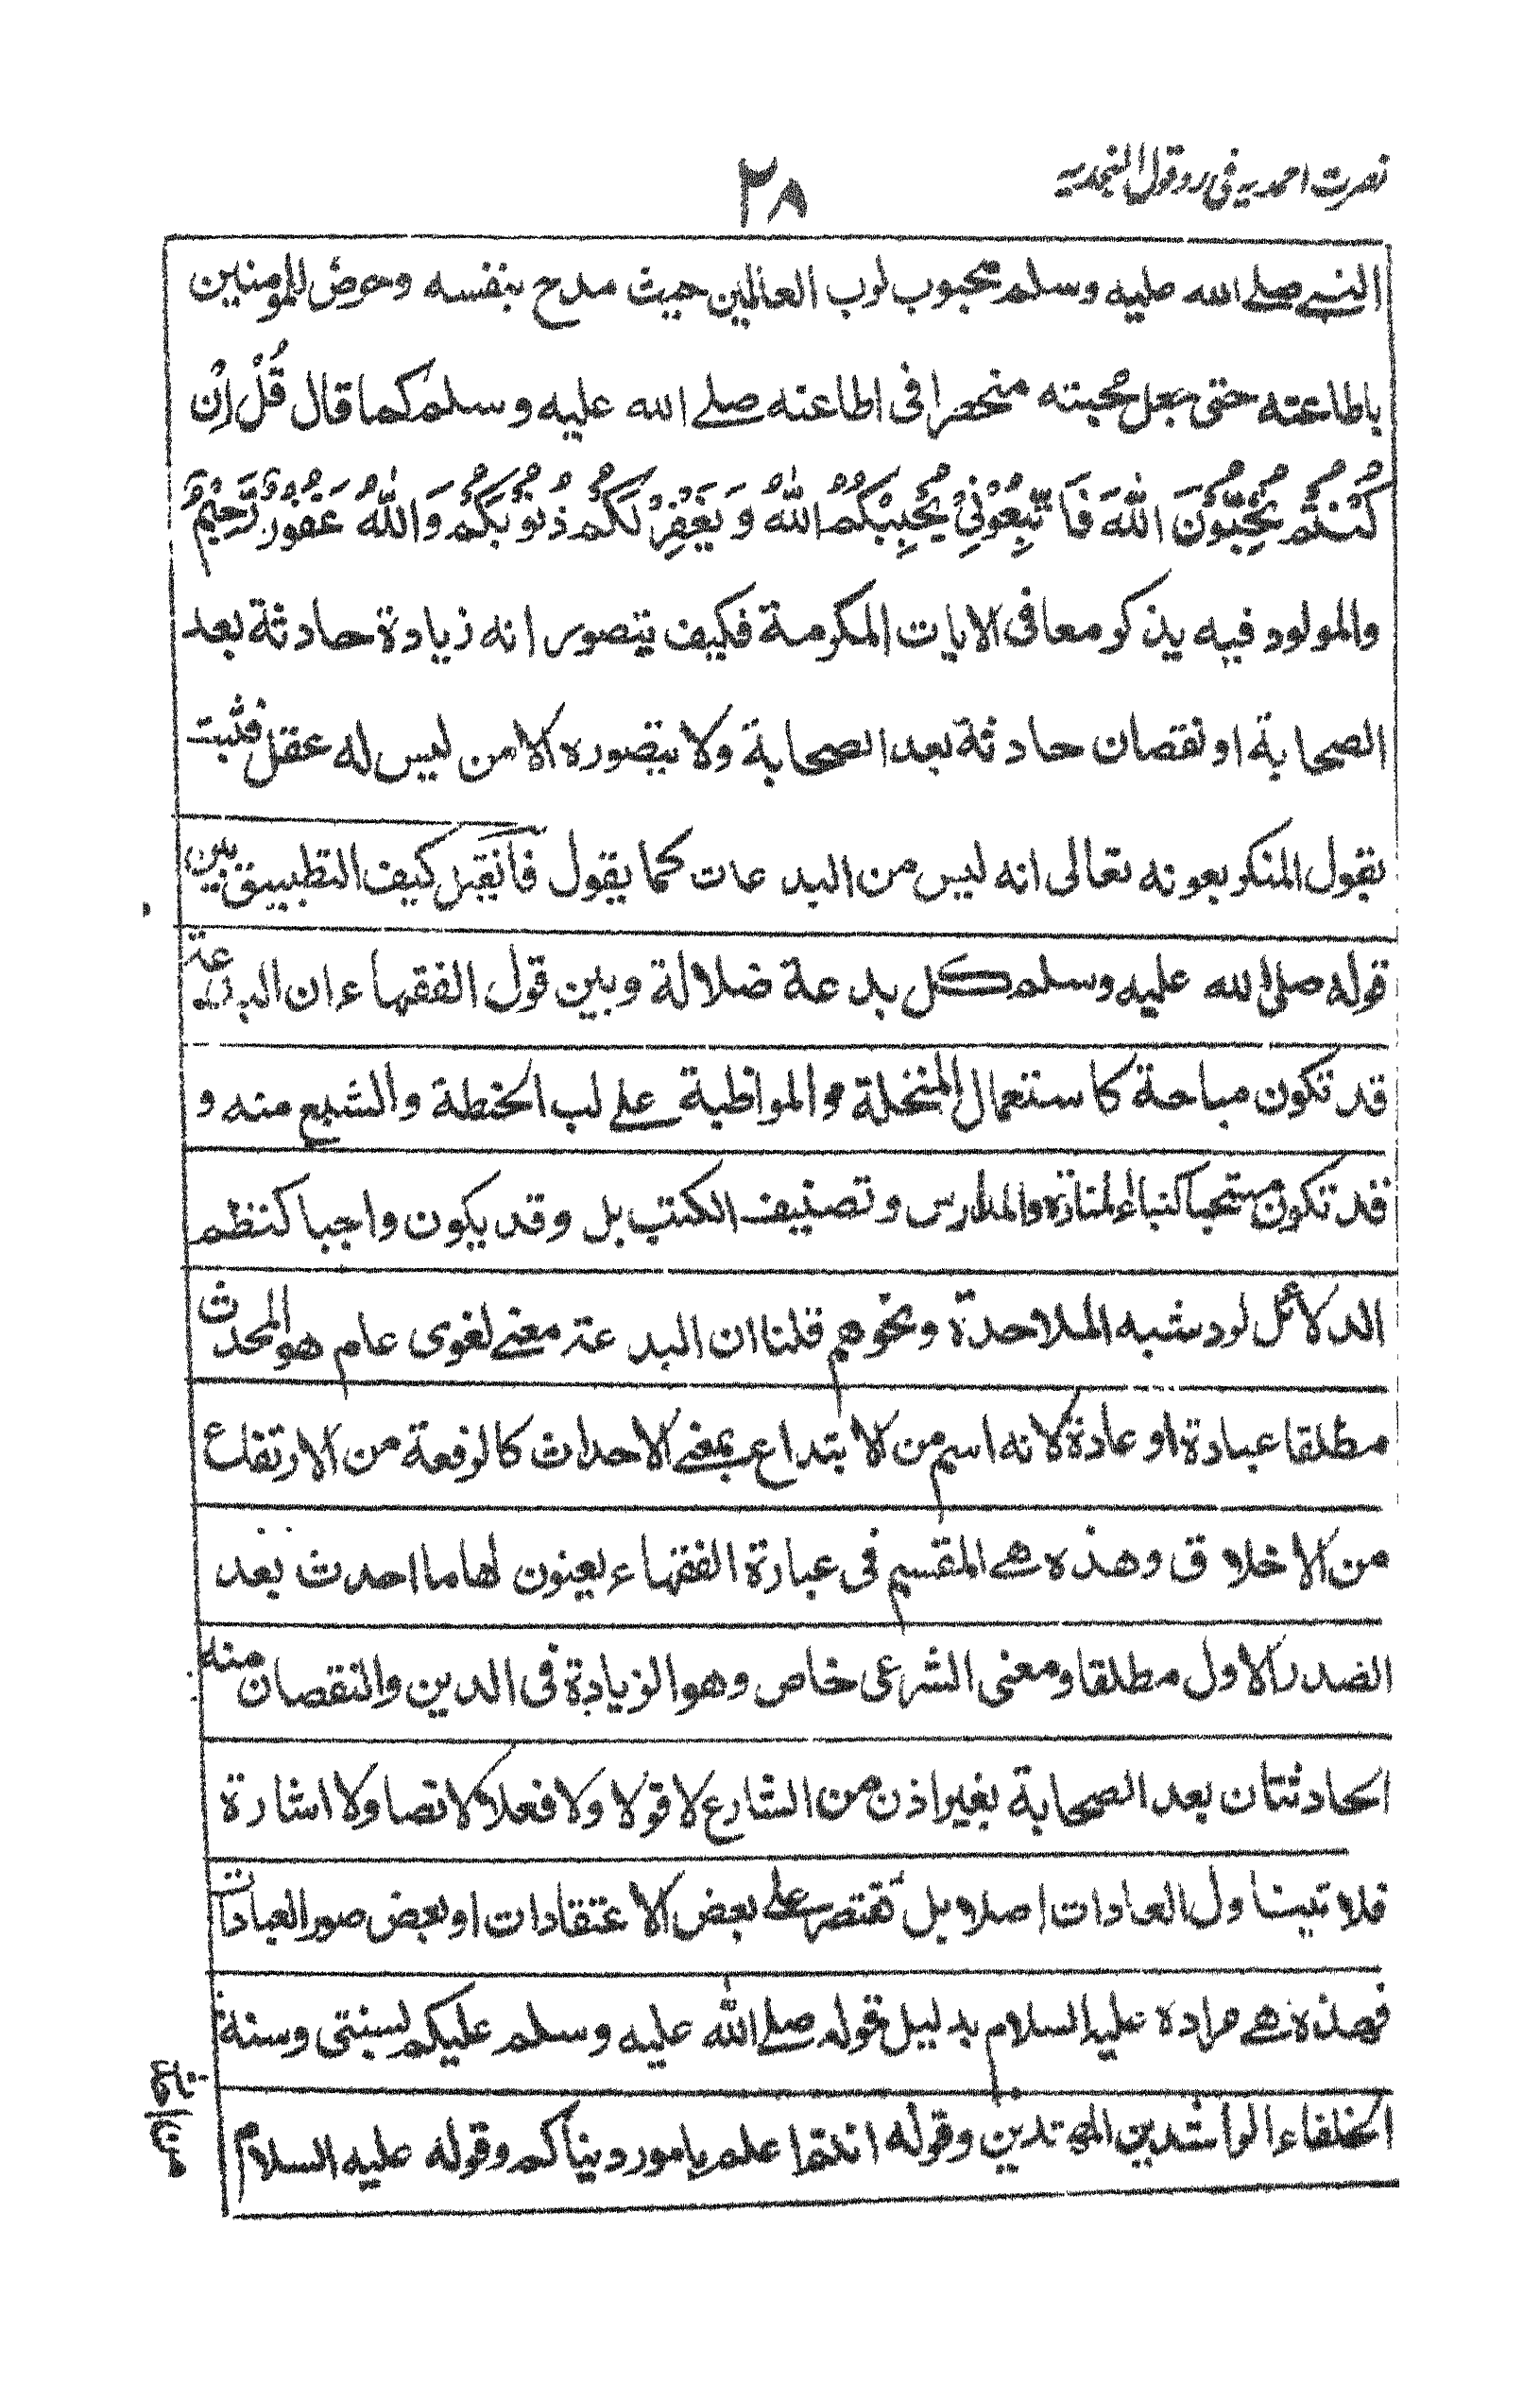 نصرت احمدیہ فی رد قول النجدیہ
٢٨
النبي صلے الله عليه وسلم محبوب لرب العالمين حيث مدح بنفسه وحرض للمومنين
باطاعته حتى جعل محبته منحصرا فى اطاعته صلے الله عليه وسلم كما قال قُلْ اِنْ
كُنْتُمْ تُحِبُّوْنَ اللّٰهَ فَاتَّبِعُوْنِيْ يُحْبِبْكُمُ اللّٰهُ وَيَغْفِرْ لَكُمْ ذُنُوْبَكُمْ وَاللّٰهُ غَفُوْرٌ رَّحِيْمٌ
والمولود فيه يذكر معا فى الايات المكرمة فكيف يتصور انه زيادة حادثة بعد
الصحابة او نقصان حادثة بعد الصحابة ولا يتصوره الا من ليس له عقل فثبت
بقول المنكر بعونه تعالى انه ليس من البدعات كما يقول فان قيل كيف التطبيق بين
قوله صلى الله عليه وسلم كل بدعة ضلالة وبين قول الفقهاء ان البدعة
قد تكون مباحة كاستعمال المنخلة والمواظبة علے لب الحنطة والشبع منه و
قد تكون مستحبا كبناء المنارة والمدارس وتصنيف الكتب بل وقد يكون واجبا كنظم
الدلائل لرد شبه الملاحدة ونحوهم قلنا ان البدعة معنے لغوى عام هو المحدث
مطلقا عبادة او عادة لانه اسم من الابتداع بمعنے الاحداث كالرفعة من الارتفاع
من الاخلاق وهذه هے المقسم فى عبارة الفقهاء يعنون لها ما احدث بعد
الصدر الاول مطلقا ومعنى الشرعى خاص وهو الزيادة فى الدين والنقصان منه
الحادثتان بعد الصحابة بغير اذن من الشارع لا قولا ولا فعلا لا نصا ولا اشارة
فلا تتناول العادات اصلا بل تقتصر علے بعض الاعتقادات او بعض صور العبادات
فهذه هے مراده عليه السلام بدليل قوله صلے الله عليه وسلم عليكم بسنتى وسنة
الخلفاء الراشدين المهتدين وقوله انتم اعلم بامور دنياكم وقوله عليه السلام